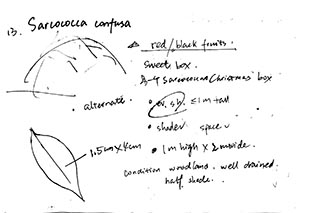 13. Sarcococca confusa
red/black fruits
sweet box.
Sarcococca Christmas box
• alternate.
• ev. sh. ≤1m tall
• shader space ✓
1.5cm x
• 1m high x 2m wide
condition woodland. well drained.
half shade.